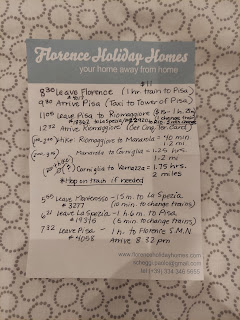 $11
Florence Holiday Homes
your home away from home
8:30 Leave Florence (1 hr train to Pisa)
9:30 Arrive Pisa (Taxi to Tower of Pisa)
11:05 Leave Pisa to Riomaggiore ($15 - 1 hr
change trains
12:32 Arrive Riomaggiore (Get Cinq. Ter. Card)
Hike: Riomaggiore to Manarola = 40 min
1.2 mi
Manarola to Corniglia = 1.25 hrs.
1.2 mi
(?) Corniglia to Vernazza = 1.75 hrs.
2 miles
* Hop on train if needed
5:50 Leave Monterosso - 15 m. to La Spezia
# 3277 (10 min. to change trains)
6:21 Leave La Spezia - 1 h 6 m. to Pisa
# (5 min. to change trains)
7:32 Leave Pisa - 1 h. to Florence S.M.N.
arrive 8:32 pm
www.florenceholidayhomes.com